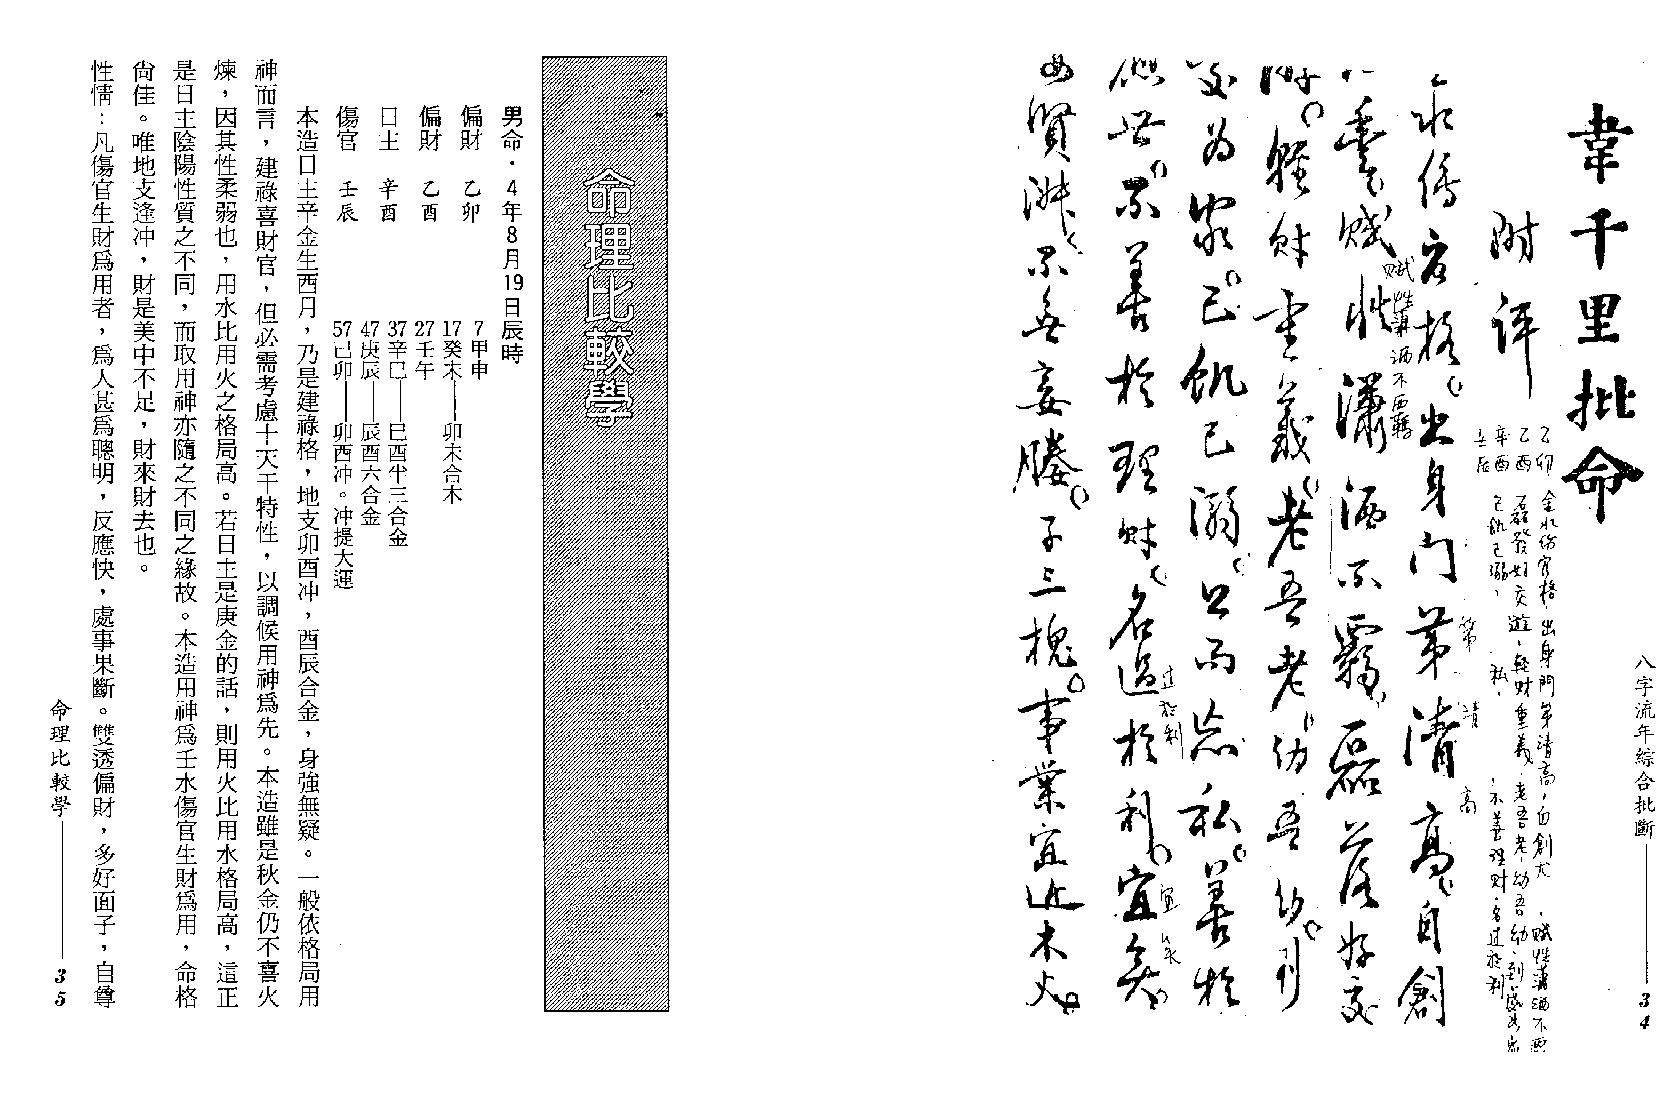 八字流年綜合批斷
34
韋千里批命
附評
乙卯 金水傷官格,出身門第清高,白創尤,賦性瀟洒不
乙酉 交遊,輕財重義,老吾老幼吾幼,
辛酉 己飢己溺,私,不善理財,名過於利
壬辰
傷官格。出身門第清高,自創
賦性瀟洒不羈,磊落好交
游。輕財重義,老吾老,幼吾幼。引
交為家。己飢己溺。公而忘私。善於
應世,不善於理財,名過於利。宜
賦性瀟洒不羈
第清高
過於利
宜
賢淑,不無妾媵。子三槐。事業宜近木火。
命理比較學
男命・4年8月19日辰時
偏財 乙卯
偏財 乙酉
日主 辛酉
傷官 壬辰
7甲申
17癸未——卯未合木
27壬午
37辛巳——巳酉半三合金
47庚辰——辰酉六合金
57己卯——卯酉冲。冲提大運
本造日主辛金生酉月,乃是建祿格,地支卯酉冲,酉辰合金,身強無疑。一般依格局用
神而言,建祿喜財官,但必需考慮十天干特性,以調候用神爲先。本造雖是秋金仍不喜火
煉,因其性柔弱也,用水比用火之格局高。若日主是庚金的話,則用火比用水格局高,這正
是日主陰陽性質之不同,而取用神亦隨之不同之緣故。本造用神爲壬水傷官生財爲用,命格
尙佳。唯地支逢冲,財是美中不足,財來財去也。
性情:凡傷官生財爲用者,爲人甚爲聰明,反應快,處事果斷。雙透偏財,多好面子,自尊
命理比較學
35